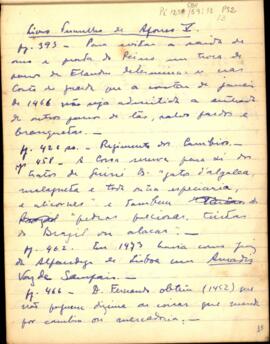 Livro Vermelho de Afonso V.
pg. 393 – Para evitar a saida de
ouro e prata do Reino em troca de
panos de Flandres determina-se nas
Cortes da Guarda que a contar de janeiro
de 1466 não seja admittida a entrada
de outros panos de lãs, salvo pardos e
branquetas. –
pg. 421 ss. – Regimento dos Cambios. –
pg. 458 – A Coroa reserva para si dos
tratos da Guiné B. "gatos d'algalea,
malagueta e toda outra especiaria,
e alicornes" e tambem
"pedras preciosas, tintas
de Brazil ou alacar;" –
pg. 462. Em 1473 havia como juiz
da Alfandega de Lisboa um Amadis
Vaz de Sampaio. –
pg. 466 – D. Fernando obtém (1452) que
não paguem dizima as coisas que mande
por cambio ou mercadoria; –